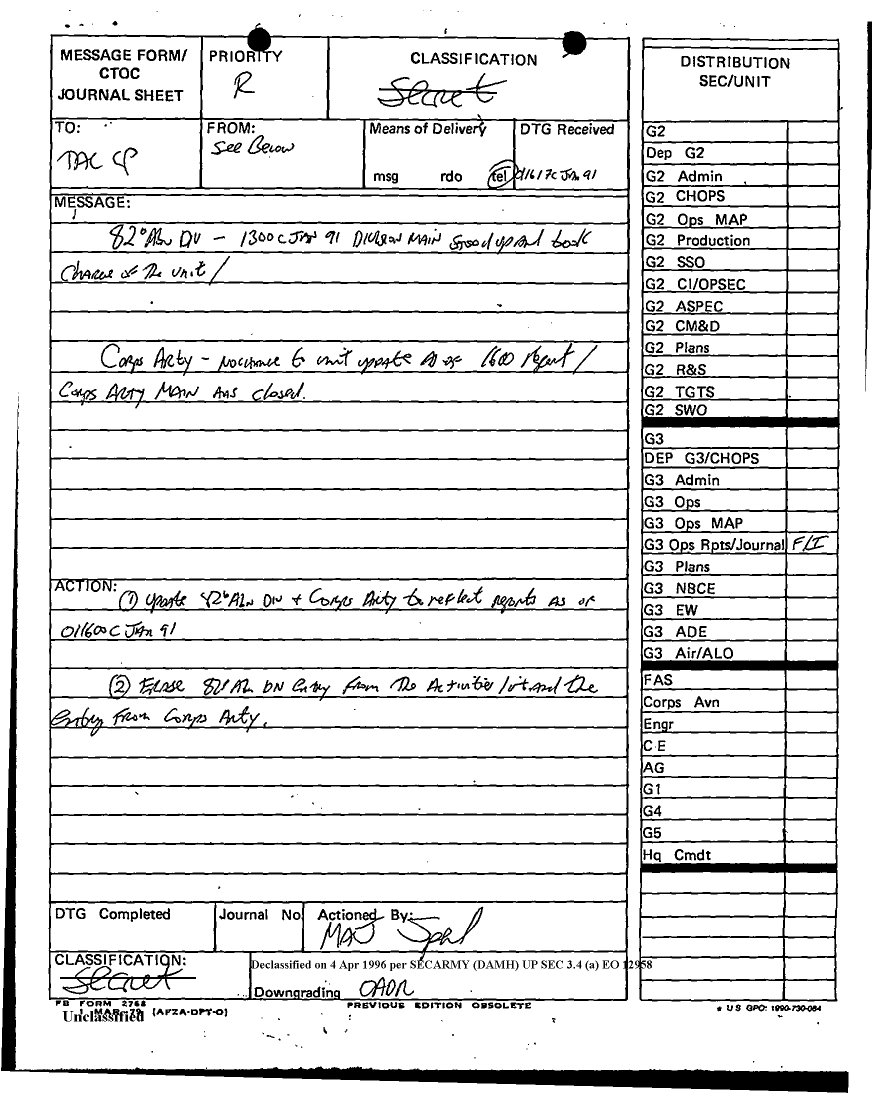 MESSAGE FORM/
CTOC
JOURNAL SHEET
PRIORITY
R
CLASSIFICATION
Secret
TO:
TAC CP
FROM:
See Below
Means of Delivery
msg rdo tel
DTG Received
011617C JAN 91
MESSAGE:
82d Abn Div - 1300C JAN 91 Division Main stood up and took
Charge of the unit/
Corps Arty - No change to unit update as of 1600 Report/
Corps Arty Main has closed.
ACTION:
(1) Update 82d Abn Div + Corps Arty to reflect reports as of
011600C JAN 91
(2) Erase 82d Abn Entry From The Activities and the
Entry From Corps Arty.
DTG Completed
Journal No
Actioned By:
MAJ
CLASSIFICATION:
Secret
Declassified on 4 Apr 1996 per SECARMY (DAMH) UP SEC 3.4 (a) EO 12958
Downgrading OADR
FB FORM 2768
1 MAR 79 (AFZA-DPT-O)
Unclassified
PREVIOUS EDITION OBSOLETE
DISTRIBUTION
SEC/UNIT
G2
Dep G2
G2 Admin
G2 CHOPS
G2 Ops MAP
G2 Production
G2 SSO
G2 CI/OPSEC
G2 ASPEC
G2 CM&D
G2 Plans
G2 R&S
G2 TGTS
G2 SWO
G3
DEP G3/CHOPS
G3 Admin
G3 Ops
G3 Ops MAP
G3 Ops Rpts/Journal F/I
G3 Plans
G3 NBCE
G3 EW
G3 ADE
G3 Air/ALO
FAS
Corps Avn
Engr
C-E
AG
G1
G4
G5
Hq Cmdt
★ U S GPO: 1990-730-064